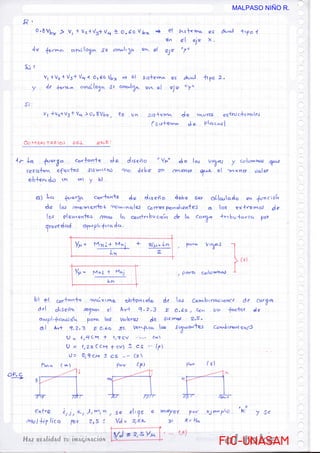 MALPASO NIÑO R.
Si :
0.80Vbx > V1 + V2 + V3 + V4 ≥ 0,60 Vbx → el sistema es dual tipo 1
en el eje x.
de forma análoga se analiza en el eje "y"
Si :
V1 + V2 + V3 + V4 < 0,60 Vbx → el sistema es dual tipo 2.
y de forma análoga se analiza en el eje "y"
Si
V1 + V2 + V3 + V4 > 0,80Vbx, es un sistema de muros estructurales
(sistema de placas)
COMENTARIOS DEL
La fuerza cortante de diseño "Vu" de las vigas y columnas que
resistan efectos sísmicos no debe ser menor que el menor valor
obtenido en a) y b).
a) La fuerza cortante de diseño debe ser calculada en función
de los momentos nominales correspondientes a los extremos de
los elementos mas la contribución de la carga tributaria por
gravedad amplificada.
Vu = Mni + Mnj / Ln + Wu·Ln / 2 , para vigas
Vu = Mni + Mnj / Ln , para columnas
b) el cortante máximo obtenido de las combinaciones de carga
del diseño según el Art 9.2.3 E 0.60, con un factor de
amplificación, para los valores de sismo 2,5.
U = 1,4CM + 1,7CV
U = 1,25 (CM + CV) ± CS
U = 0,9CM ± CS
Entre i, j, k, l, m, n, se elige el mayor por ejemplo "k" y se
multiplica por 2,5 :
Vu = 2,5 Vu
Haz realidad tu imaginación
FIC-UNASAM